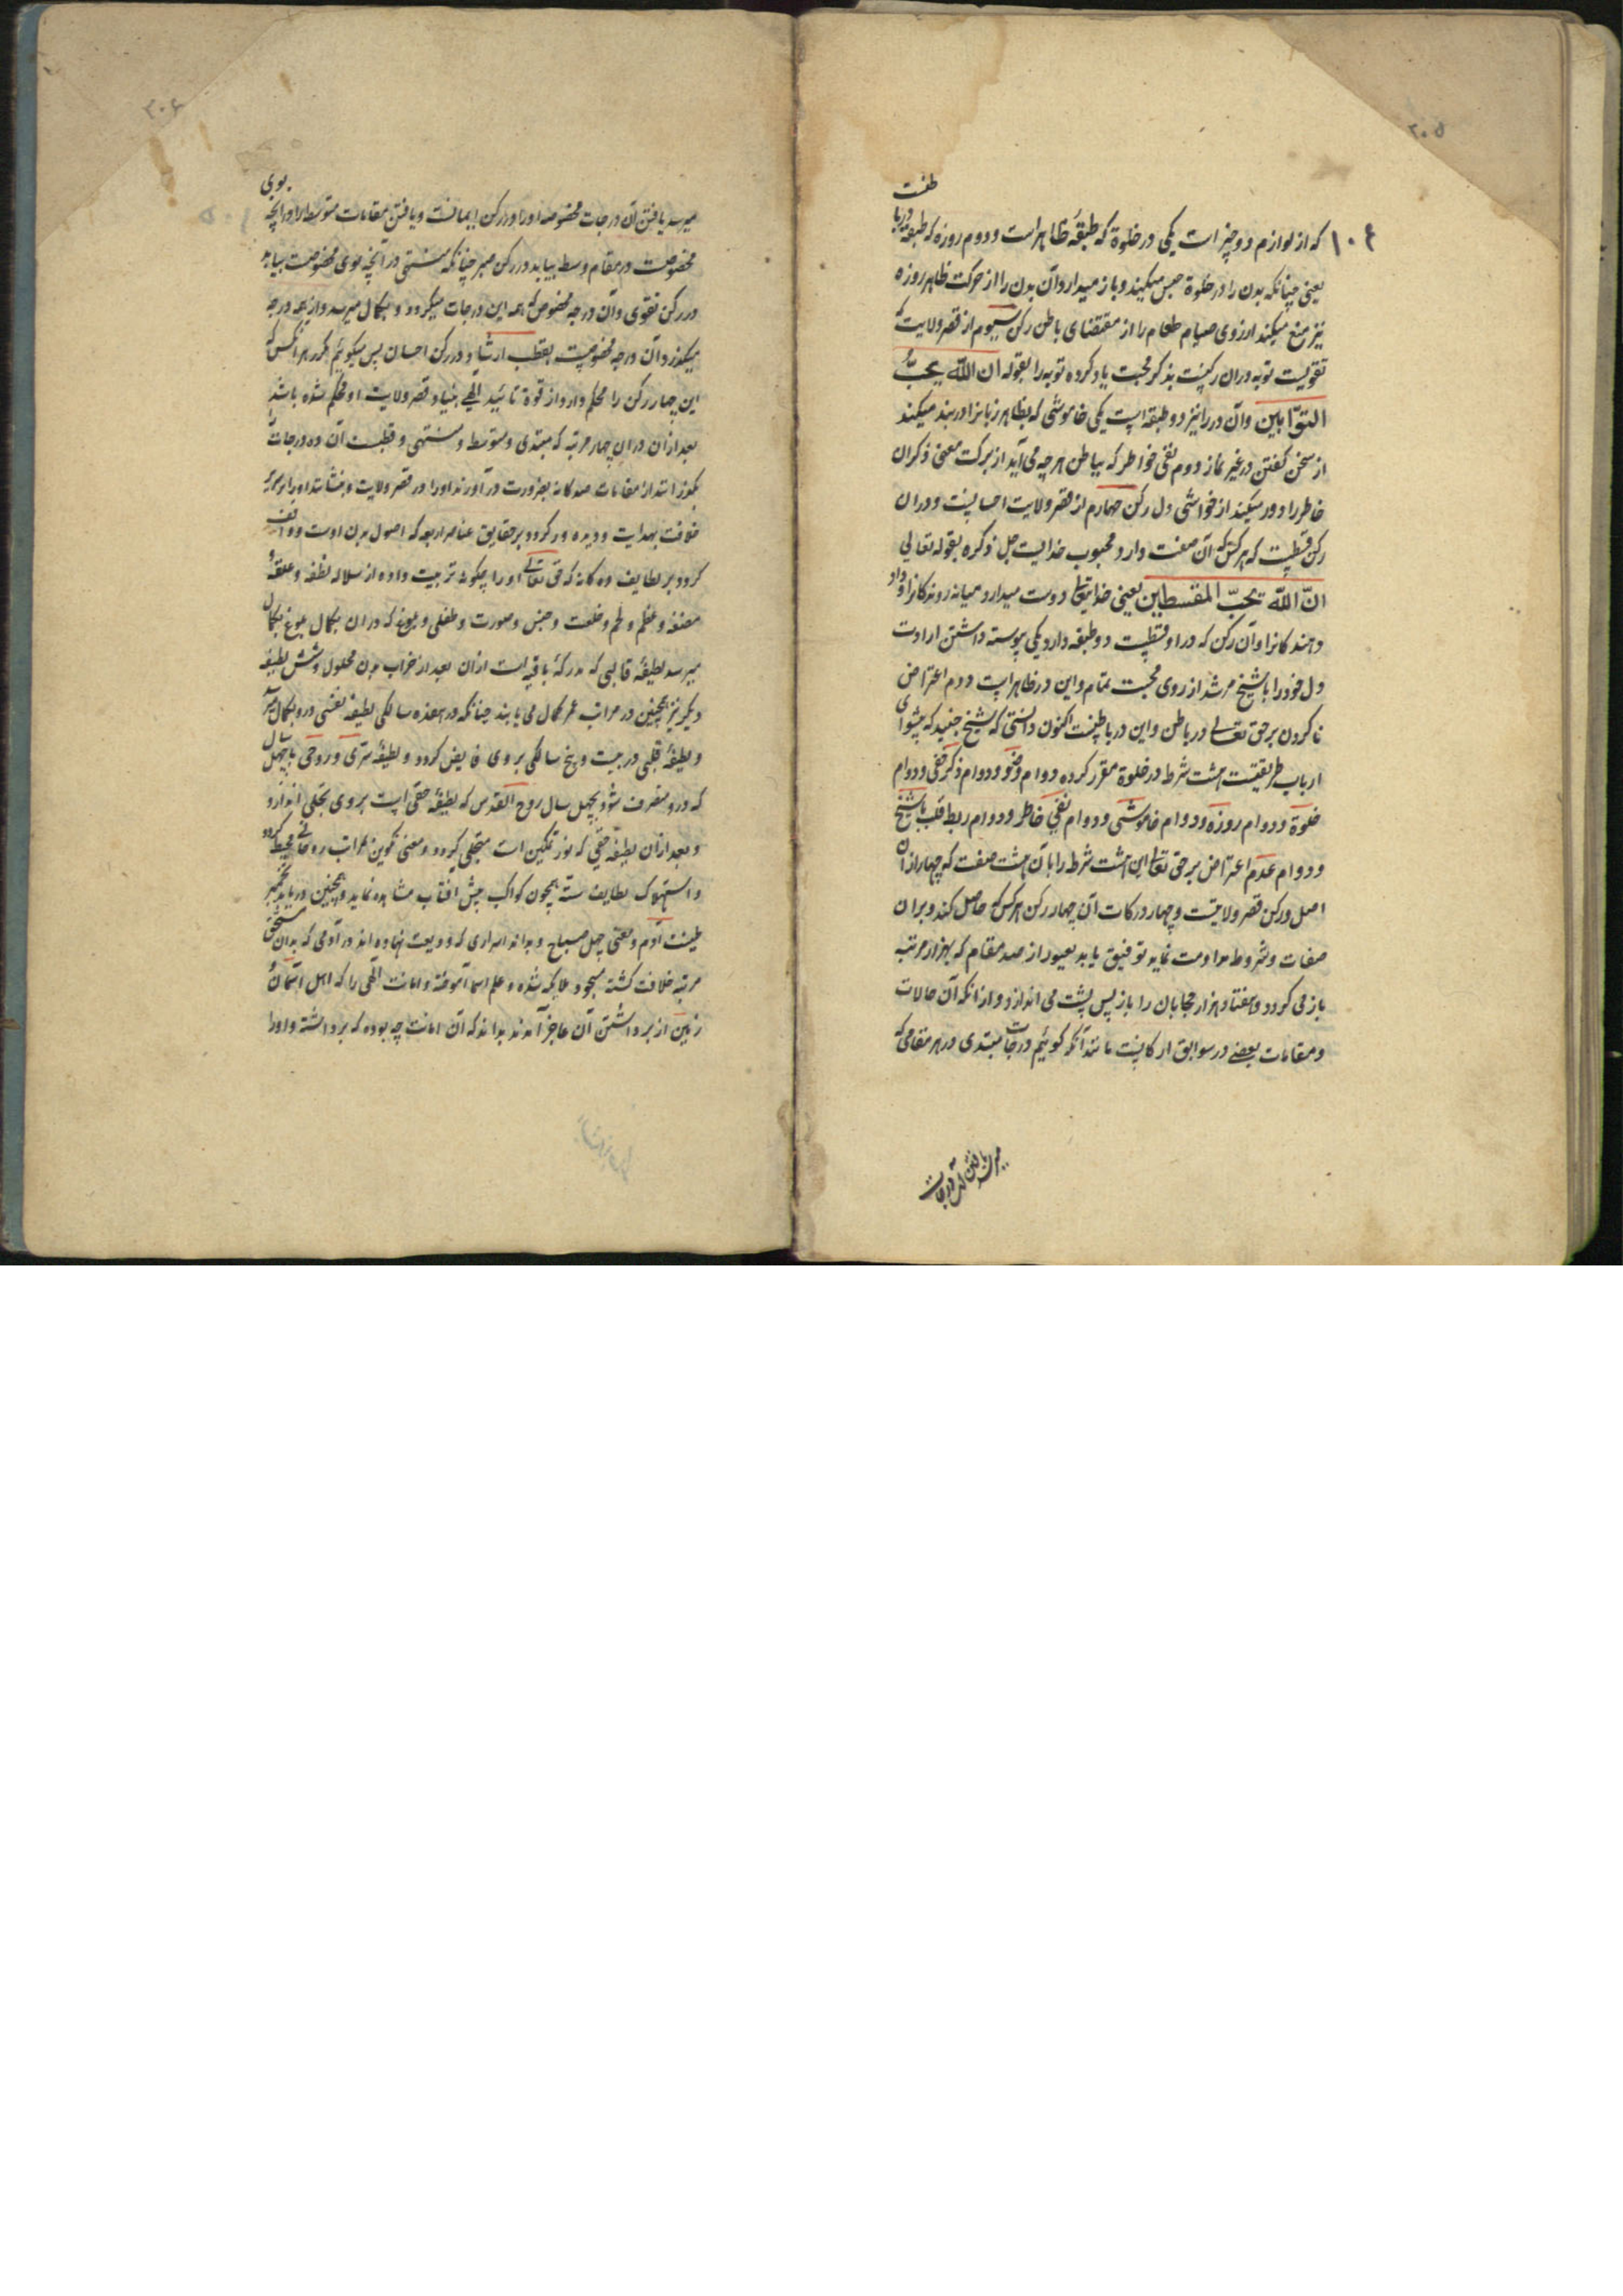 ۲۰۵
۱۰۴
طنست
که از لوازم دو چیز است یکی در خلوة که طبقهٔ ظاهر است و دوم روزه که طبقه دربا
یعنی چنانکه بدن را در خلوة حبس میکیند و باز میدارد آن بدن را از حرکت ظاهر روزه
نیز منع میکند ارزوی صیام طعام را از مقتضای باطن رکن سیوم از قصر ولایت که
تقویست توبه در ان رکینست بذکر محبت یاد کرده توبه را بقوله ان الله یحبّ
التوّابین وآن در را نیز دو طبقه است یکی خاموشی که بظاهر زبانرا در بند میکند
از سخن کفتن در غیر نماز دوم نفی خواطر که بباطن هرچه می آید از برکت معنی ذکر ان
خاطر را دور میکیند از خواشی دل رکن چهارم از قصر ولایت احسانست و در ان
رکن قسطیست که هرکس که آن صفت دارد محبوب خدایست جل ذکره بقوله تعالی
انّ الله یحبّ المقسطین یعنی خدایتعالی دوست میدارد میانه روندکانرا و داد
دهندکانرا و آن رکن که در او قسطیست دو طبقه دارد یکی پیوسته داشتن ارادت
دل خود را با شیخ مرشد از روی محبت بتمام و این در ظاهر است دوم اعتراض
ناکردن بر حق تعالی در باطن و این در باطنست اکنون دانستی که شیخ جنید که پیشوای
ارباب طریقتست هشت شرط در خلوة مقرر کرده دوام وضو و دوام ذکر خفی و دوام
خلوة و دوام روزه و دوام خاموشی و دوام نفی خاطر و دوام ربط قلب با شیخ
و دوام عدم اعتراض بر حق تعالی این هشت شرط را با آن هشت صفت که چهار از ان
اصل و رکن قصر ولایتست و چهار درکات آن چهار رکن هرکس که حاصل کند و بر ان
صفات و شروط مداومت نماید توفیق یابد بعبور از صد مقام که بهزار مرتبه
باز می کردد و هفتاد هزار حجابان را باز پس پشت می اندازد و از انکه آن حالات
و مقامات بعضی در سوابق ارکانست مانند آنکه کوئیم درجات مبتدی در هر مقامی که
میرسد یافتن آن درجات
۲۰۶
بوی
میرسد یافتن آن درجات مخصوصه او را در رکن ایمانست و یافتن مقامات متوسط را در آنچه
مخصوصست در مقام وسط بیابد در رکن صبر چنانکه منتهی در آنچه بوی مخصوصست بیابد
در رکن تقوی و آن درجه مخصوص که همه این درجات میکردد و بکمال میرسد و از همه درجه
میکذرد آن درجه مخصوصست بقطب ارشاد و در رکن احسان پس میکوئیم که هر انکس که
این چهار رکن را محکم دارد از قوة تائید الهی بنیاد قصر ولایت او محکم شده باشد
بعد از ان در ان چهار مرتبه که مبتدی و متوسط و منتهی و قطبست آن ده درجات را
بکذراند از مقامات صدکانه بضرورت در آورند او را در قصر ولایت و بنشانند او را بر سریر
خلافت بهدایت و دیده ور کردد بر حقایق عناصر اربعه که اصول بدن اوست و واقف
کردد بر لطایف ده کانه که حق تعالی او را چکونه تربیت داده از سلاله نطفه و علقه
مضغه و عظم و لحم و خلعت و جنس و صورت و طفلی و بلوغ که در ان بکمال بلوغ بکمال
میرسد لطیفهٔ قالبی که مدرکهٔ باقیه است از ان بعد از خراب بدن محلول و شش لطیفه
دیکر نیز همچنین در مراتب عمر کمال می یابند چنانکه در هفده سالکی لطیفهٔ نفسی در و بکمال میرسد
و لطیفهٔ قلبی در بیست و پنج سالکی بروی فایض کردد و لطیفهٔ سرّی و روحی تا بچهل سال
که در و متصرف شود بچهل سال روح القدس که لطیفهٔ خفی است بروی تجلی اندازد
و بعد از ان لطیفهٔ حقّی که نور تمکین است متجلی کردد و معنی تکوین مراتب روحانی محیط کردد
و استهلاک لطایف ستّه همچون کواکب پیش افتاب مشاهده نماید و همچنین دریابد تخمیر
طینت آدم و معنی چهل صباح و بداند اسراری که ودیعت نهاده اند در آدمی که بدان مستحق
مرتبه خلافت کشته مسجود ملایکه شده و علم اسما آموخته و امانت الهی را که اهل آسمان و
زمین از برداشتن آن عاجز آمدند بداند که آن امانت چه بوده که برداشته و او را